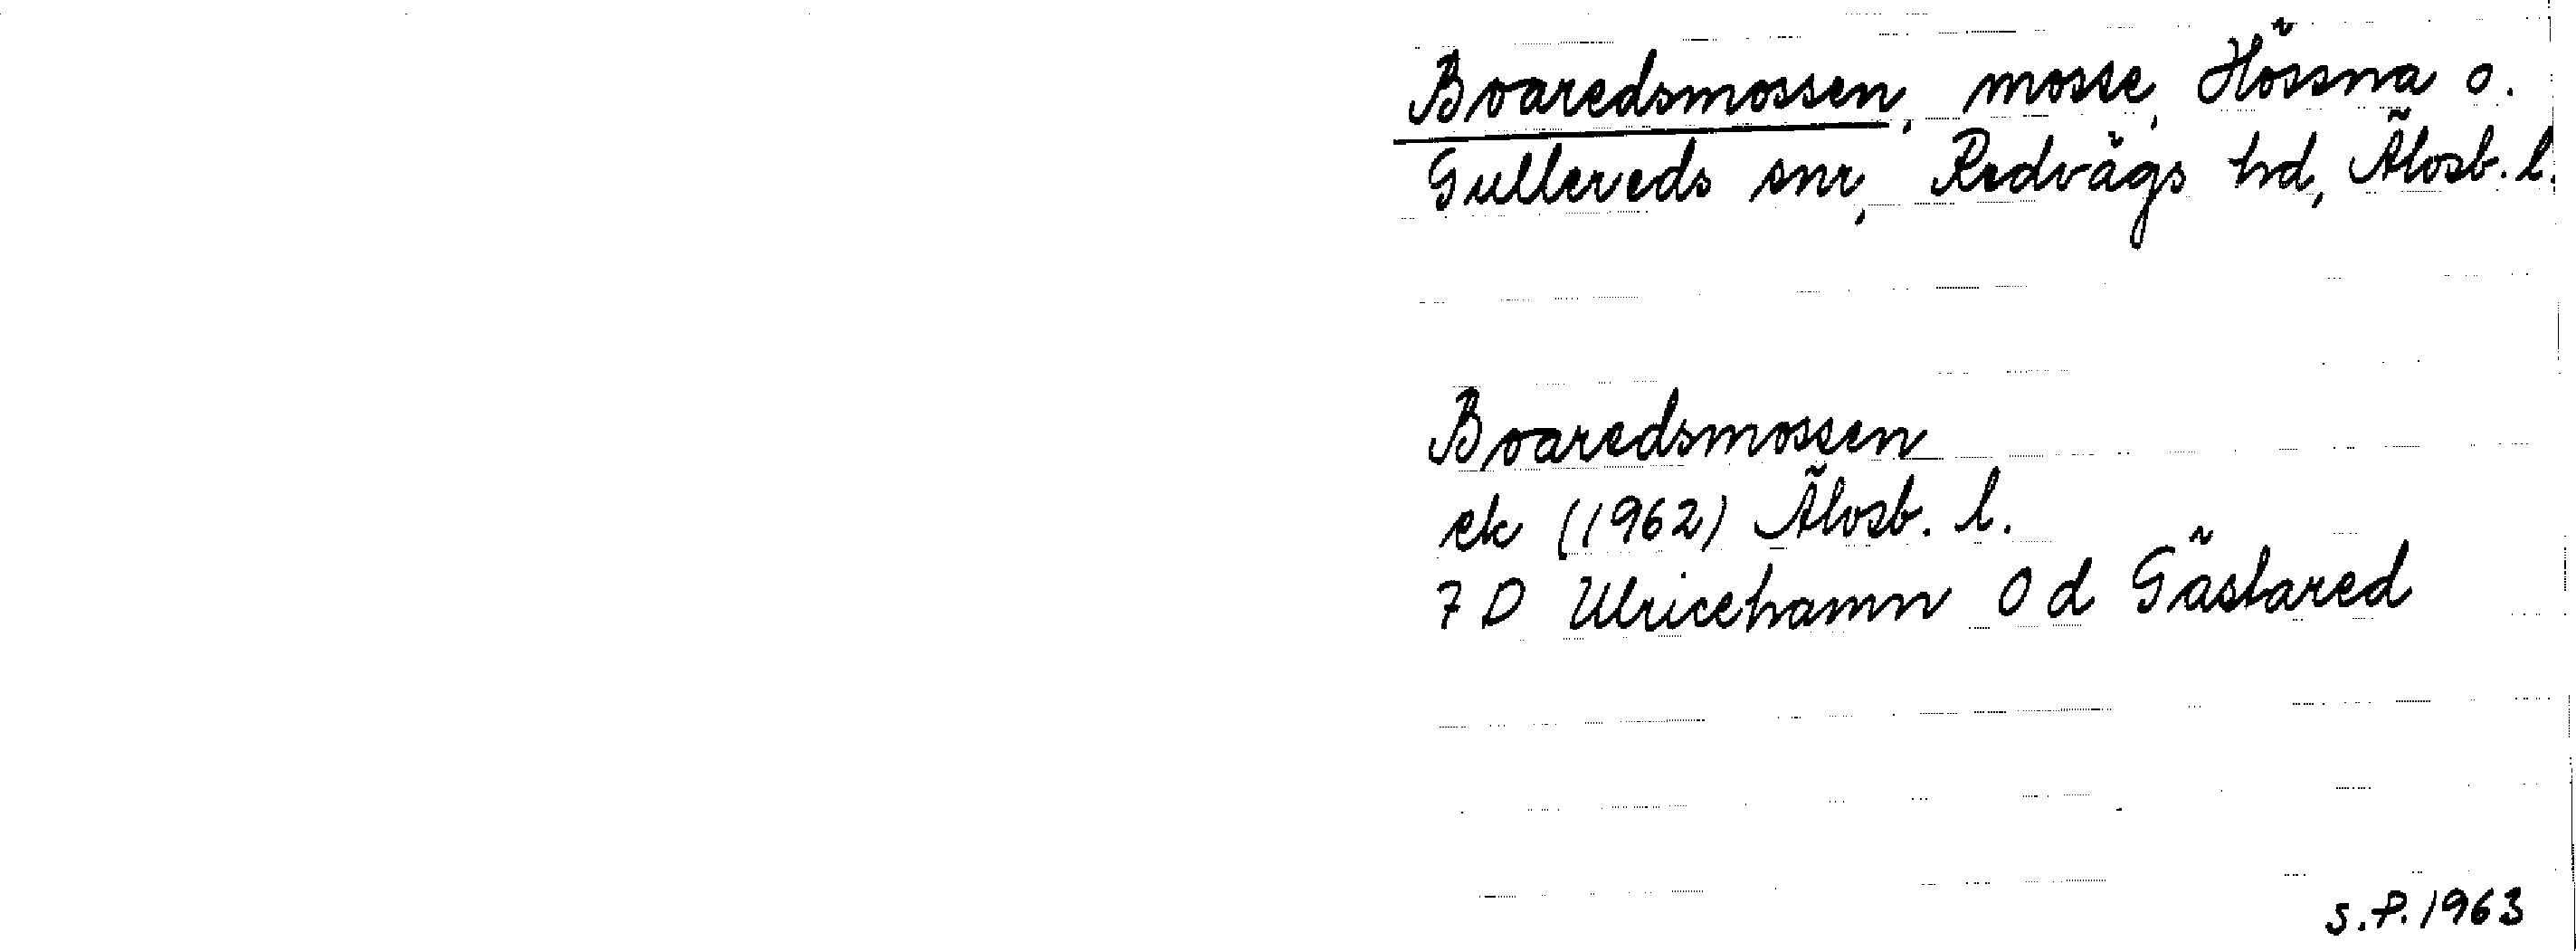 Boaredsmossen, mosse, Hössna o.
Gullereds snr, Redvägs hd, Älvsb. l.
Boaredsmossen
ek (1962) Älvsb. l.
7 D Ulricehamn 0 d Gästared
S.P. 1963